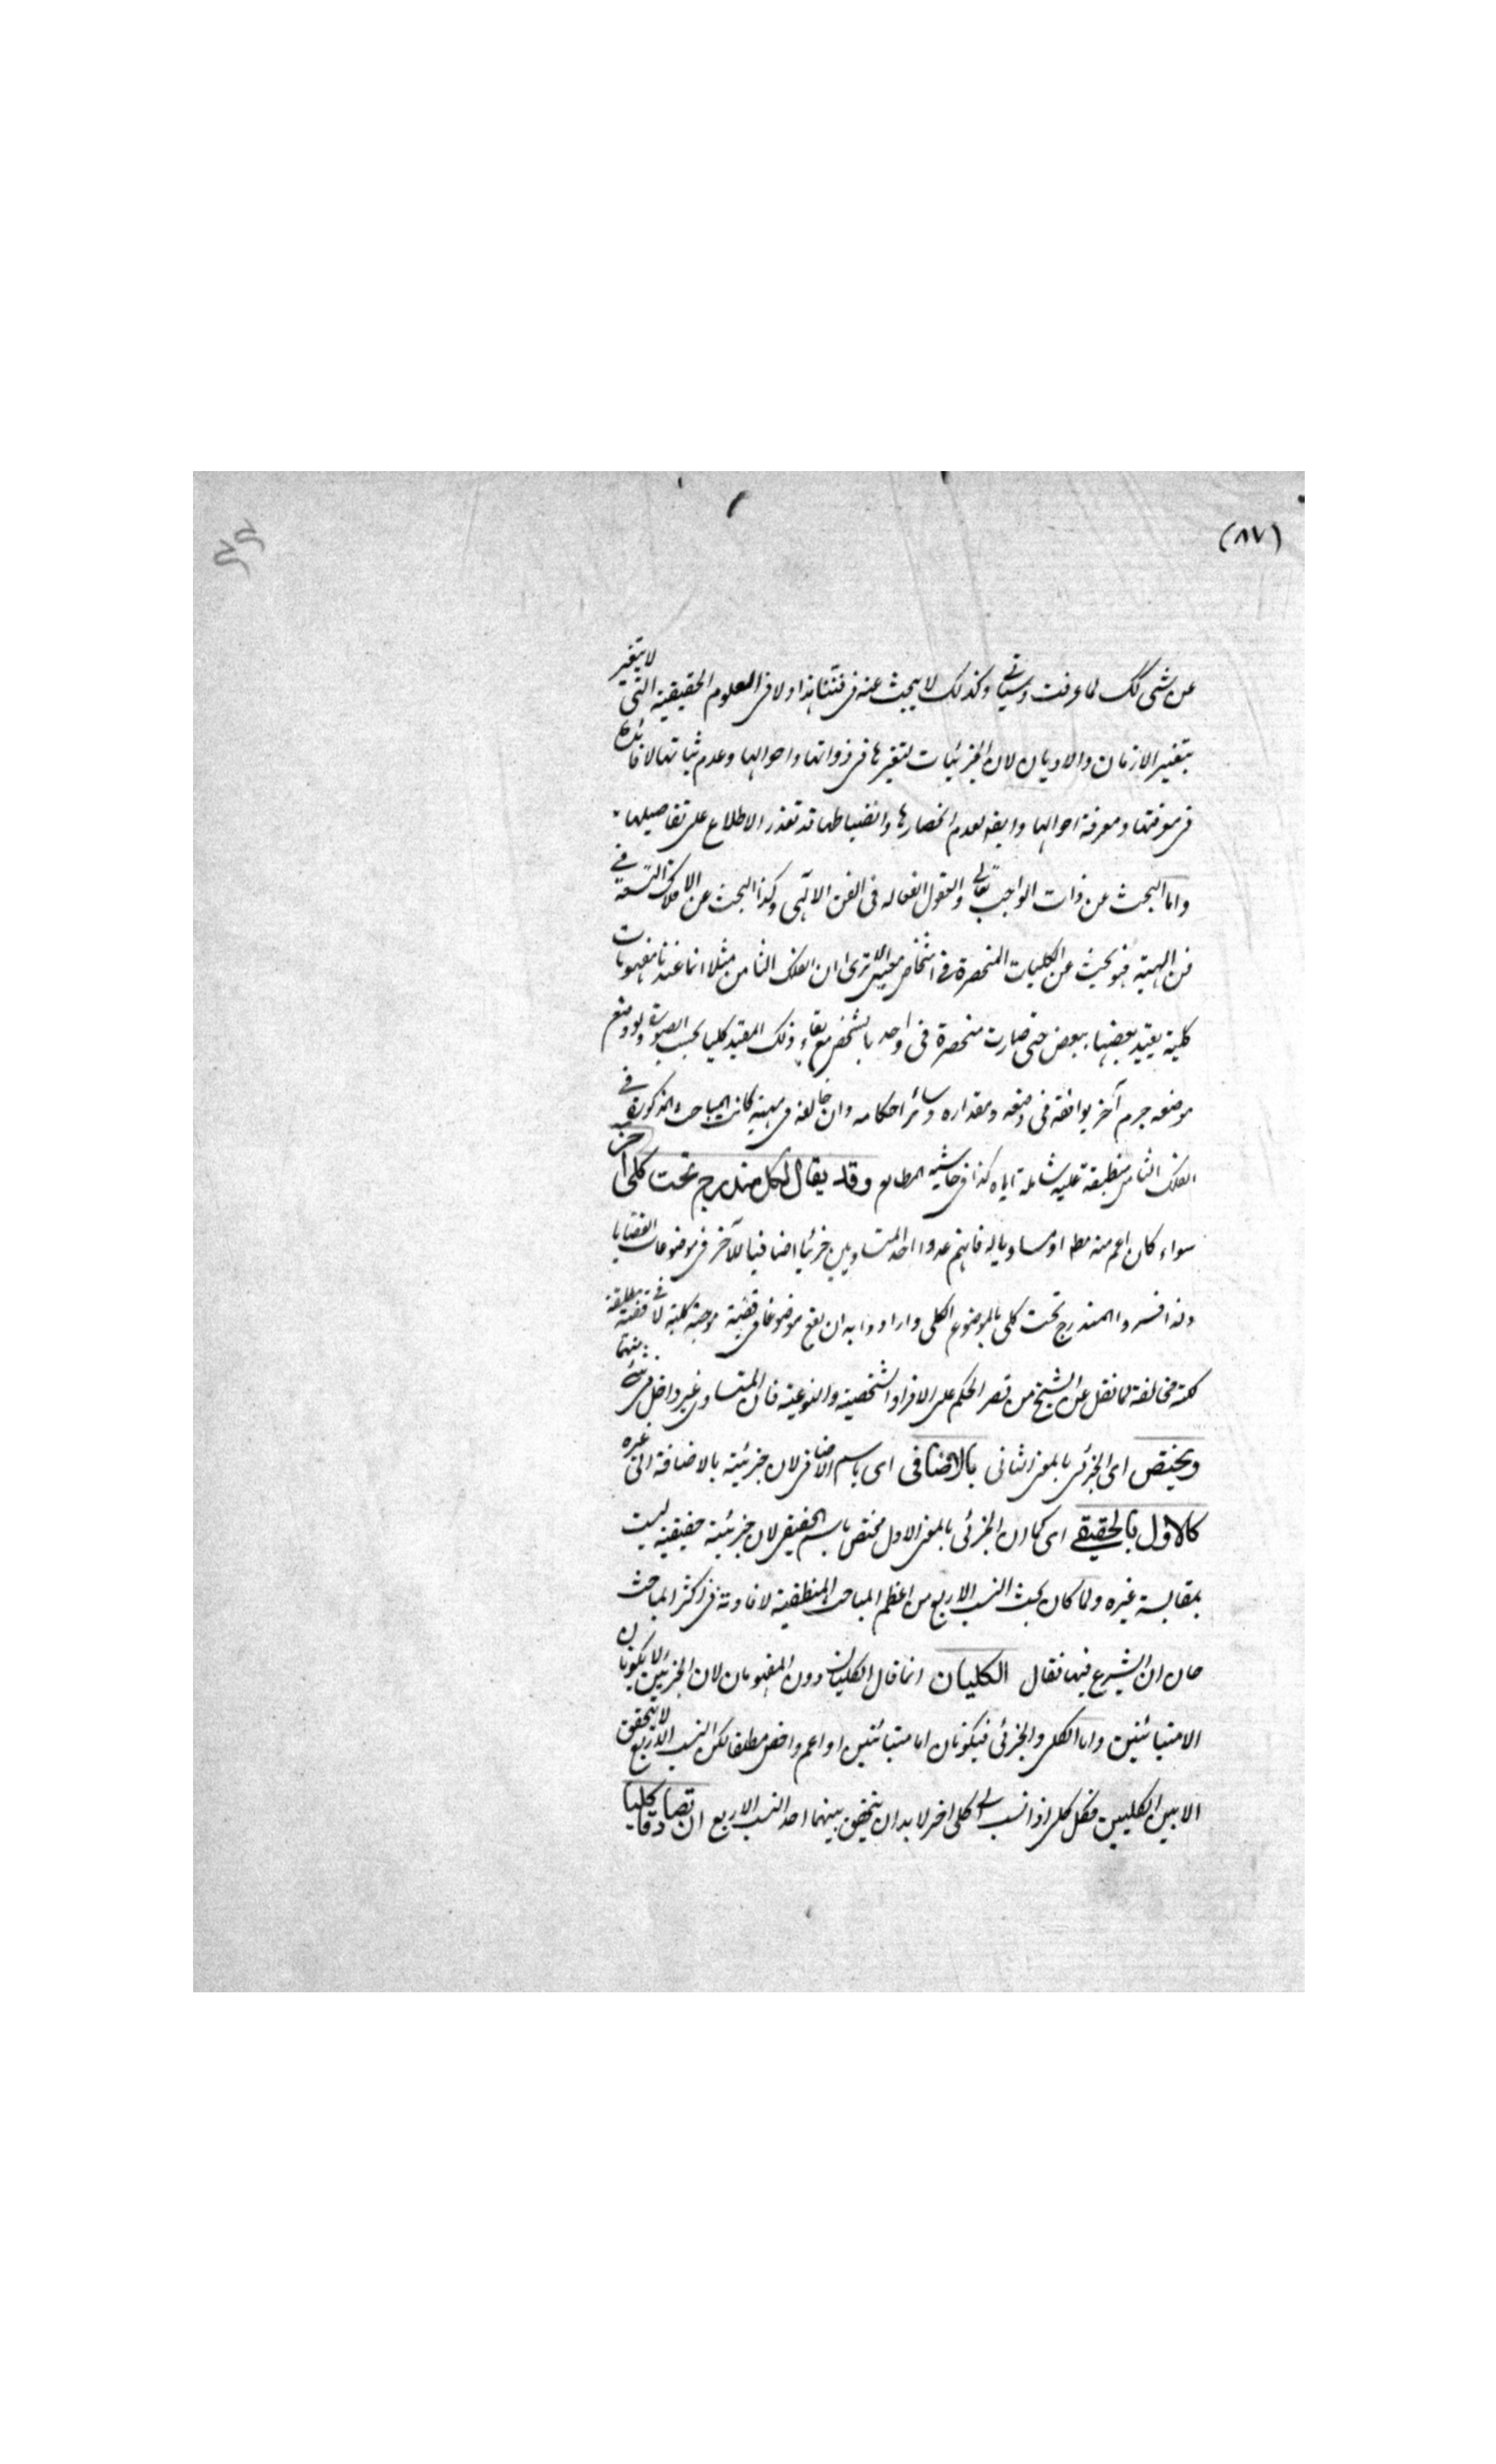 (٨٧)
عن شئ كك لما عرفت وسياتي وكذلك لا يبحث عنه فى فننا هذا ولا فى العلوم الحقيقية التى لا يتغير
بتغير الازمان والاديان لان الجزئيات لتغيرها فى ذواتها واحوالها وعدم ثباتها لا فائدة
فى معرفتها ومعرفة احوالها وايضا لعدم انحصارها وانضباطها قد تعذر الاطلاع على تفاصيلها
واما البحث عن ذات الواجب تعالى والعقول الفعاله فى الفن الالهى وكذا البحث عن الافلاك التسعة فى
فن الهيئة فبحث عن الكليات المنحصرة فى اشخاص معينة الا ترى ان الفلك الثامن مثلا انما عندنا مفهومات
كلية يقيد بعضها ببعض حتى صارت منحصرة فى واحد بالشخص مع بقاء ذلك المقيد كليا بحسب الصورة ولو وضع
موضعه جرم آخر يوافقه فى وضعه ومقداره وسائر احكامه وان خالفه فى مهيته كانت المباحث المذكورة فى
الفلك الثامن منطبقة عليه شاملة اياه كذا فى حاشية المطالع وقد يقال لكل مندرج تحت كلى آخر
سواء كان اعم منه مطلقا او مساويا له فانهم عدوا احد المتساويين جزئيا اضافيا للآخر فى موضوعات القضايا
ولذا فسروا المندرج تحت كلى بالموضوع الكلى وارادوا به ان يقع موضوعا فى قضية موجبة كلية لا فى قضية مطلقة
كلية مخالفة لما نقل عن الشيخ من قصر الحكم على الافراد الشخصية والنوعية فان المتساوى غير داخل فى شئ منهما
ويختص اى الجزئى بالمعنى الثانى بالاضافى اى باسم الاضافى لان جزئيته بالاضافة الى غيره
كالاول بالحقيقى اى كما ان الجزئى بالمعنى الاول مختص باسم الحقيقى لان جزئيته حقيقية ليست
بمقايسة غيره ولما كان بحث النسب الاربع من اعظم المباحث المنطقية لافادته فى اكثر المباحث
حان ان يشرع فيها فقال الكليان انما قال الكليان دون المفهومان لان الجزئيين لا يكونان
الا متبائنين واما الكلى والجزئى فيكونان اما متبائنين او اعم واخص مطلقا لكن النسب الاربع لا يتحقق
الا بين الكليين فكل كلى اذا نسب الى كلى اخر لا بد ان يتحقق بينهما احد النسب الاربع ان تصادقا كليا